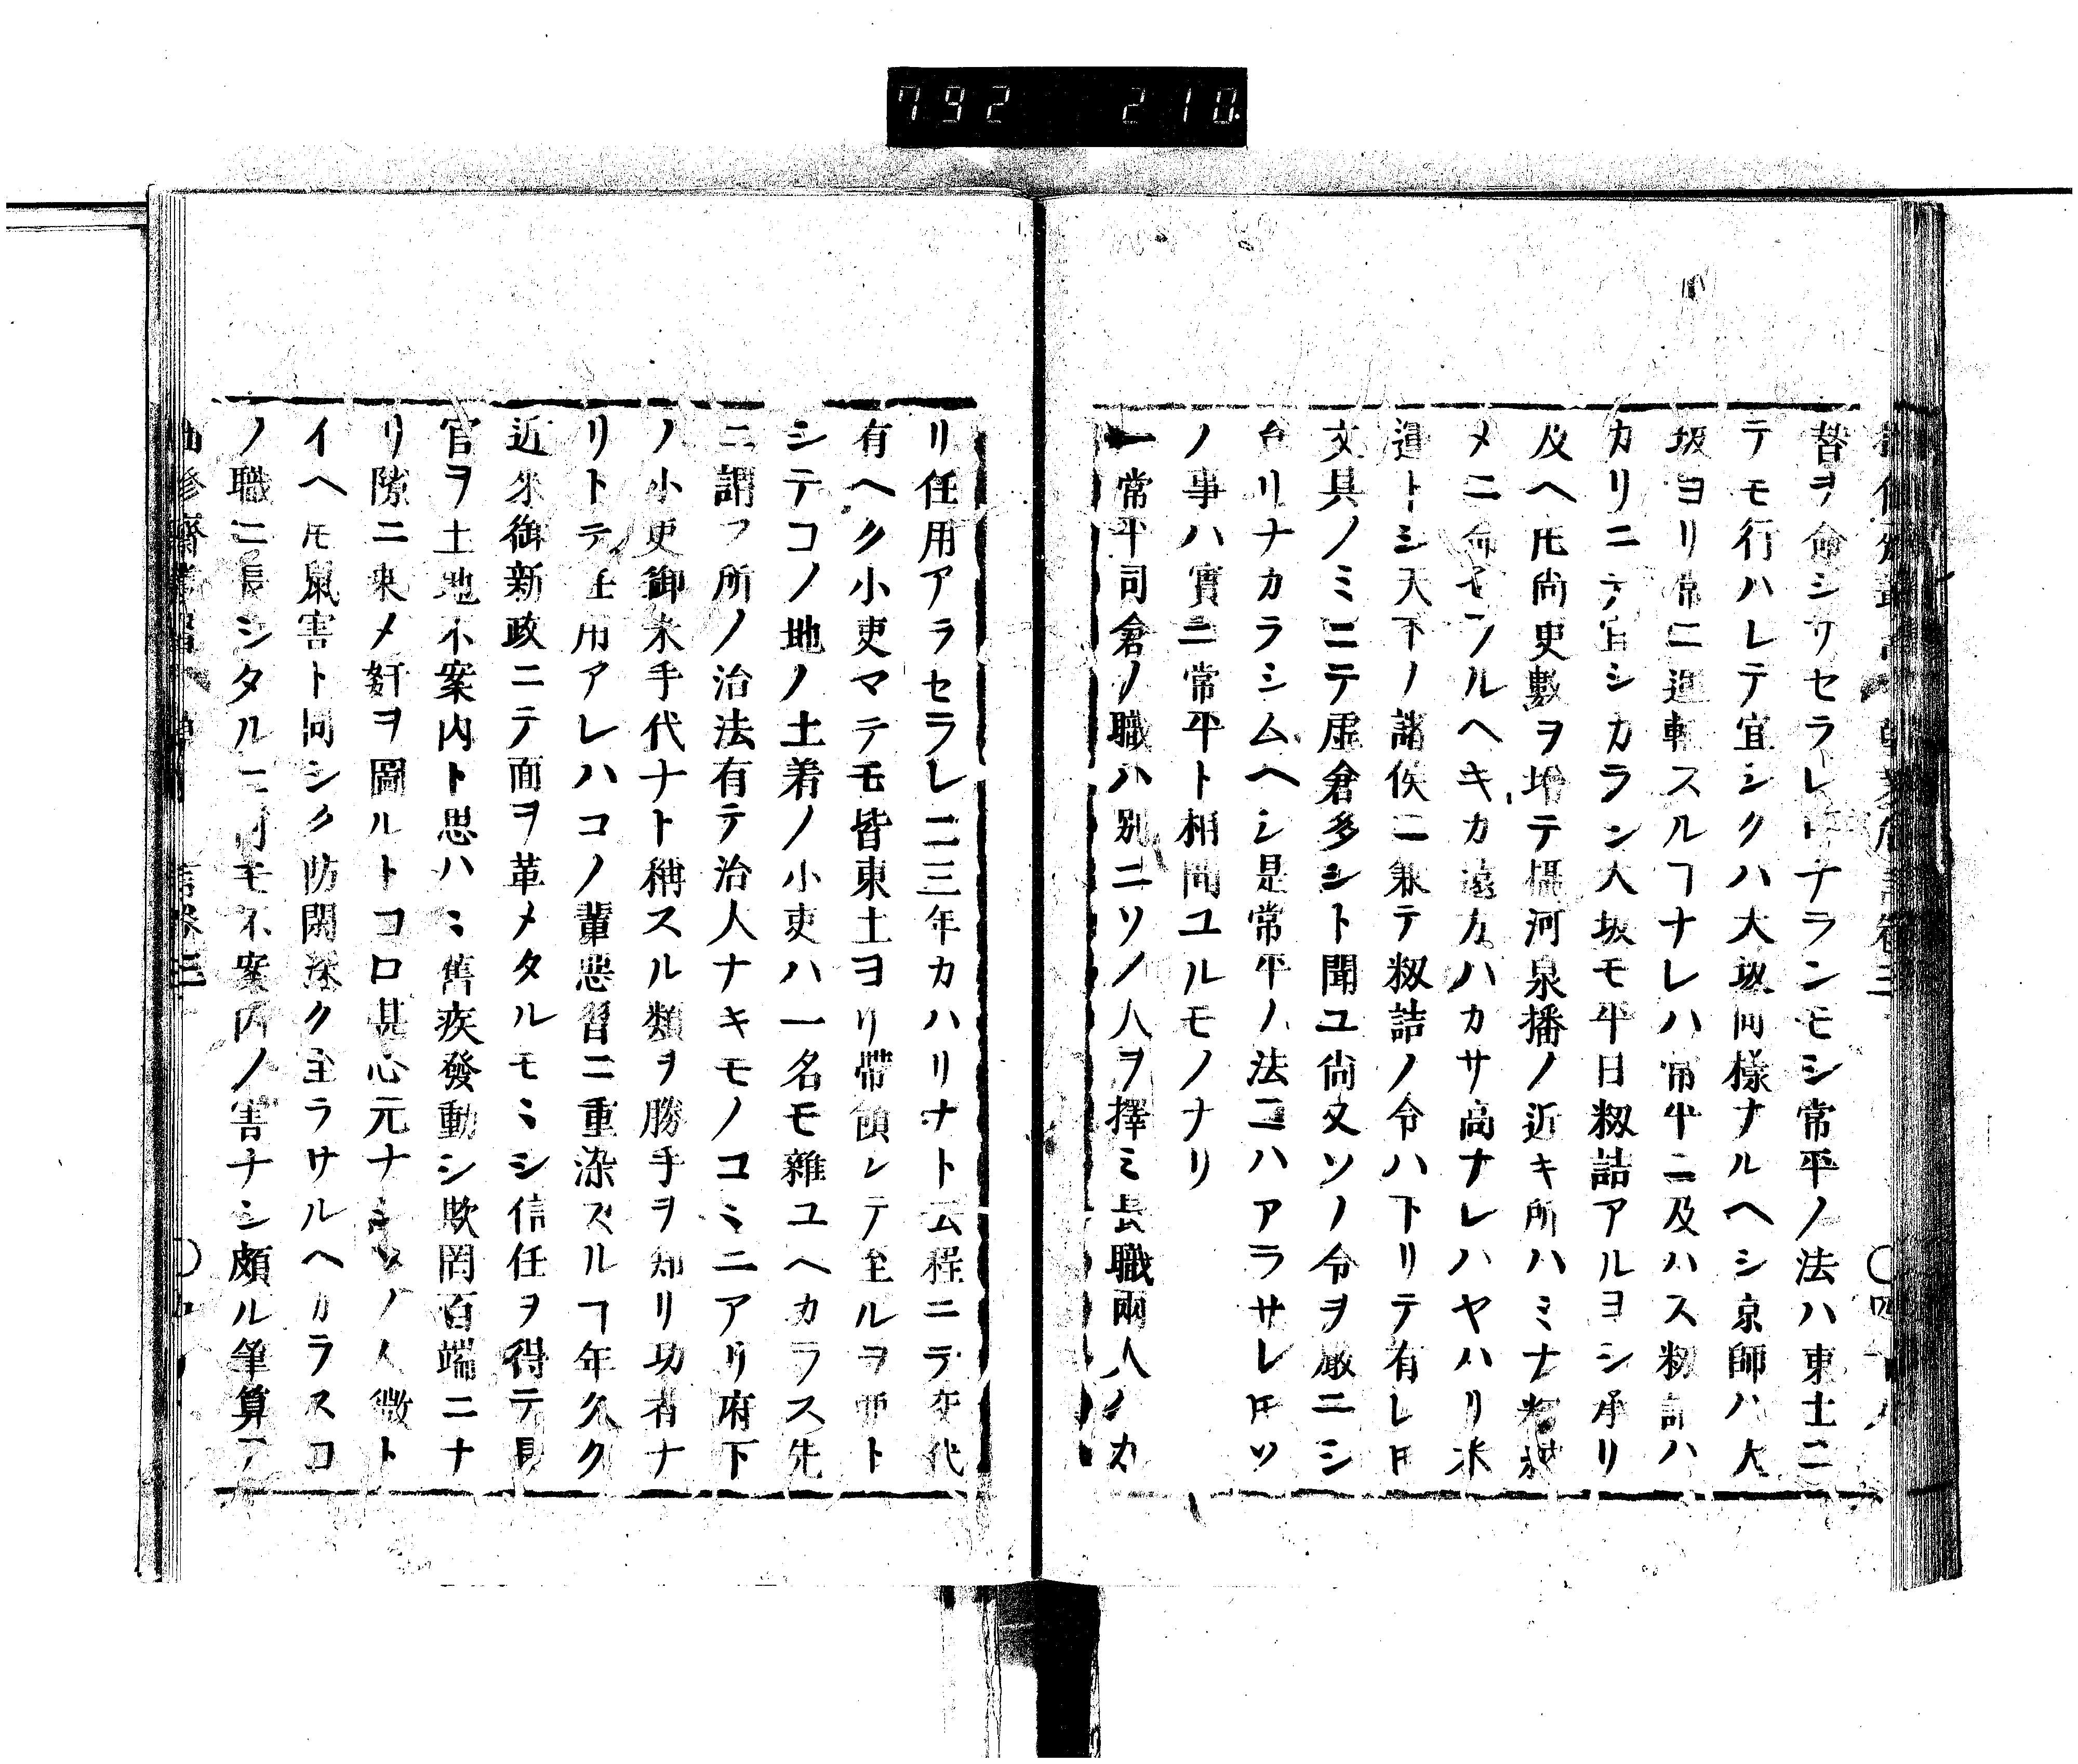 792 210
替ヲ命シサセラレ𪜈ナランモシ常平ノ法ハ東土ニ
テモ行ハレテ宜シクハ大坂同様ナルヘシ京師ハ大
坂ヨリ常ニ運轉スルヿナレハ常平ニ及ハス籾詰ハ
カリニテ宜シカラン大坂モ平日籾詰アルヨシ承リ
及ヘ𪜈尚更數ヲ増テ攝河泉播ノ近キ所ハミナ
メニ命セラルヘキカ遠方ハカサ高ナレハヤハリ米
運トシ天下ノ諸侯ニ兼テ籾詰ノ令ハ下リテ有レ𪜈
文具ノミニテ虚倉多シト聞ユ尚又ソノ令ヲ嚴ニシ
リナカラシムヘシ是常平ノ法ニハアラサレ𪜈ソ
ノ事ハ實ニ常平ト相関ユルモノナリ
一常平司倉ノ職ハ別ニソノ人ヲ擇ミ長職兩人ノカ
リ任用アラセラレ二三年カハリナト云程ニテ交代
有ヘク小吏マテモ皆東土ヨリ帶領シテ至ルヲ要ト
シテコノ地ノ土着ノ小吏ハ一名モ雜ユヘカラス先
ニ謂フ所ノ治法有テ治人ナキモノコミニアリ府下
ノ小吏御米手代ナト稱スル類ヲ勝手ヲ知リ功者ナ
リトテ任用アレハコノ輩惡習ニ重染スルヿ年久ク
近來御新政ニテ面ヲ革メタルモミシ信任ヲ得テ長
官ヲ土地不案内ト思ハミ舊疾發動シ欺罔百端ニナ
リ隙ニ来メ姧ヲ圖ルトコロ甚心元ナシソノ人微ト
イヘ𪜈鼠害ト同シク防閑深ク至ラサルヘカラスコ
ノ職ニ長シタルニ何モ不案内ノ害ナシ頗ル筆算ア